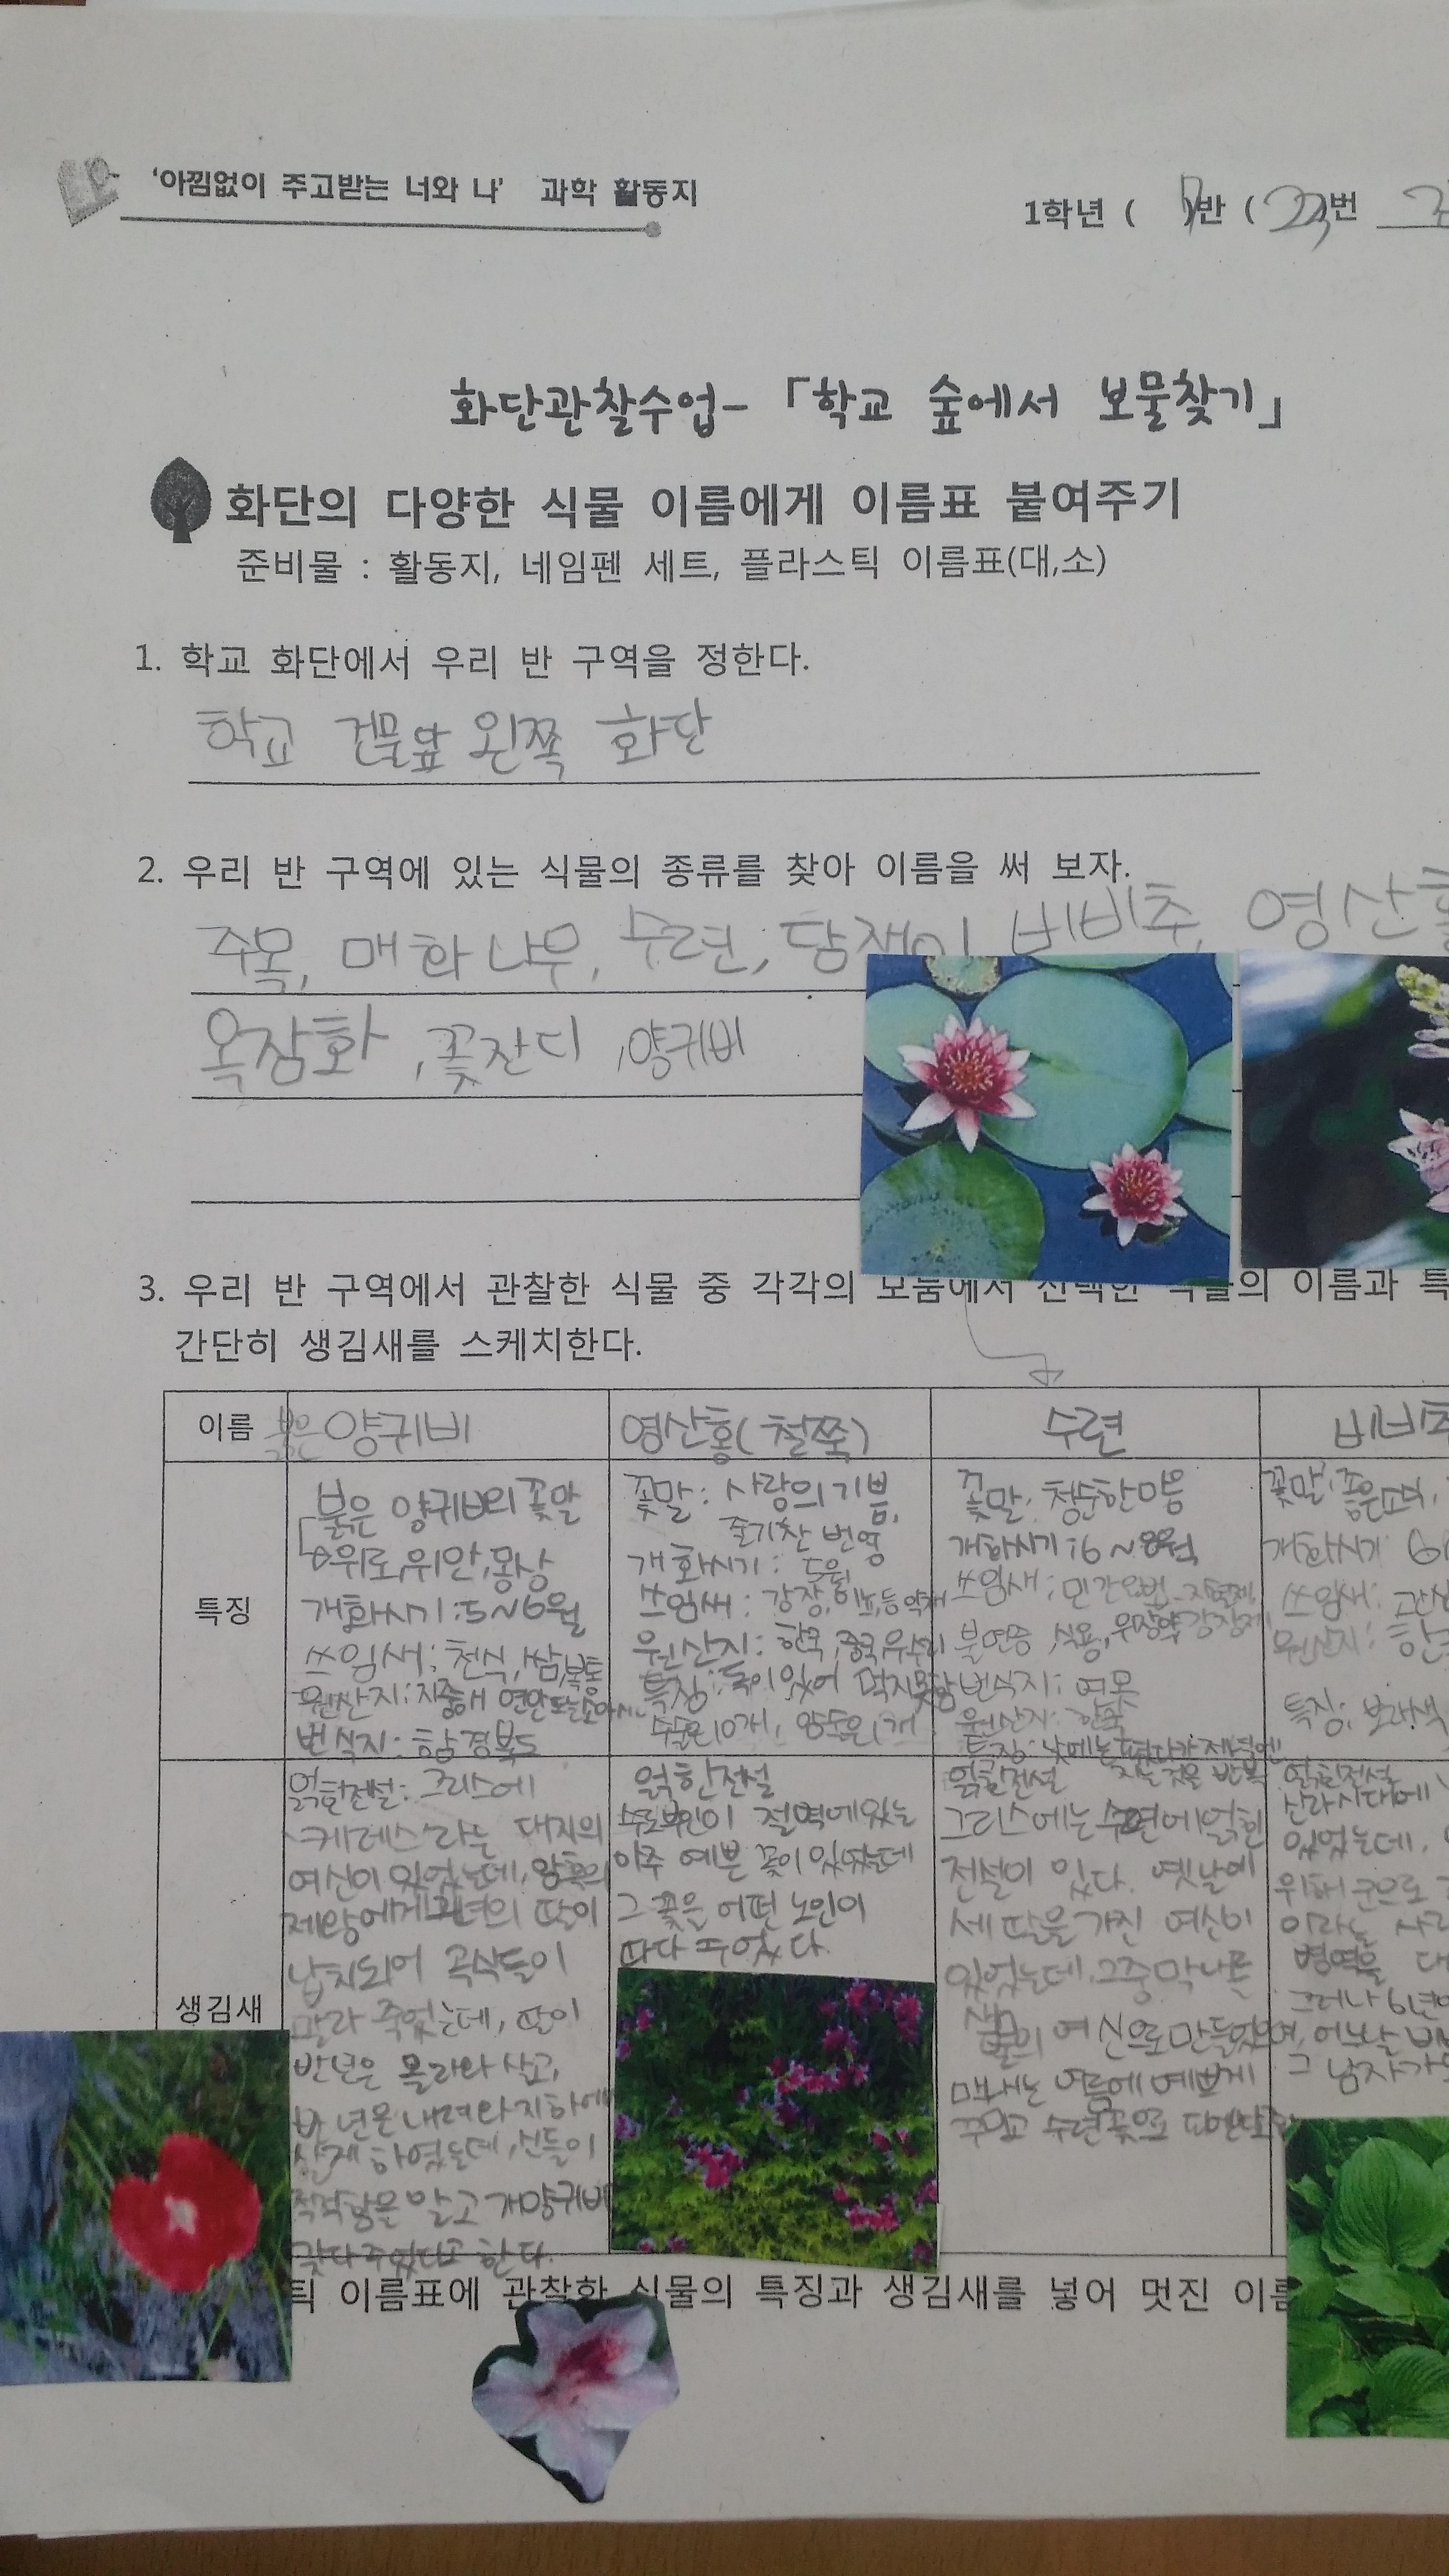 '아낌없이 주고받는 너와 나' 과학 활동지
1학년 ( 7)반 (23)번
화단관찰수업-「학교 숲에서 보물찾기」
화단의 다양한 식물 이름에게 이름표 붙여주기
준비물 : 활동지, 네임펜 세트, 플라스틱 이름표(대,소)
1. 학교 화단에서 우리 반 구역을 정한다.
학교 건물앞 왼쪽 화단
2. 우리 반 구역에 있는 식물의 종류를 찾아 이름을 써 보자.
주목, 매화나무, 수련, 담쟁이 비비추, 영산홍
옥잠화, 꽃잔디, 양귀비
3. 우리 반 구역에서 관찰한 식물 중 각각의 모둠에서 선택한 식물의 이름과 특
간단히 생김새를 스케치한다.
이름 붉은 양귀비 영산홍(철쭉) 수련 비비추
특징
붉은 양귀비의 꽃말
위로, 위안, 몽상
개화시기:5~6월
쓰임새: 천식, 복통
원산지: 지중해 연안 또는
번식지: 함경북도
꽃말: 사랑의 기쁨,
줄기찬 번영
개화시기: 5월
쓰임새: 강장, 이뇨, 등 약재
원산지: 한국, 중국, 우수리
특징: 독이 있어 먹지못함
수술은 10개, 암술은 1개
꽃말: 청순한마음
개화시기:6~8월
쓰임새: 민간요법-지혈제,
불면증, 식용, 강장제
번식지: 연못
원산지: 한국
특징: 낮에는 폈다가 저녁엔
지는것을 반복
꽃말: 좋은소식,
개화시기
쓰임새: 관상
원산지: 한국
특징: 보라색
생김새
얽힌전설: 그리스에
'케레스'라는 대지의
여신이 있었는데,
제왕에게 그녀의 딸이
납치되어 곡식들이
말라 죽었는데, 딸이
반년은 올라와 살고,
반년은 내려와 지하에
살게 하였는데, 신들이
적적함을 알고 개양귀비
갖다주었다고 한다.
얽힌전설
수로부인이 절벽에있는
아주 예쁜 꽃이 있었는데
그 꽃을 어떤 노인이
따다 주었다.
얽힌전설
그리스에는 수련에얽힌
전설이 있다. 옛날에
세 딸을 가진 여신이
있었는데, 그중 막내를
샘물의 여신으로 만들었으며,
막내는 여름에 예쁘게
꾸미고 수련꽃으로
얽힌전설
신라시대에
있었는데,
위해 군으로
이라는
병역을
그러나 6년이
어느날
그 남자가
틱 이름표에 관찰한 식물의 특징과 생김새를 넣어 멋진 이름